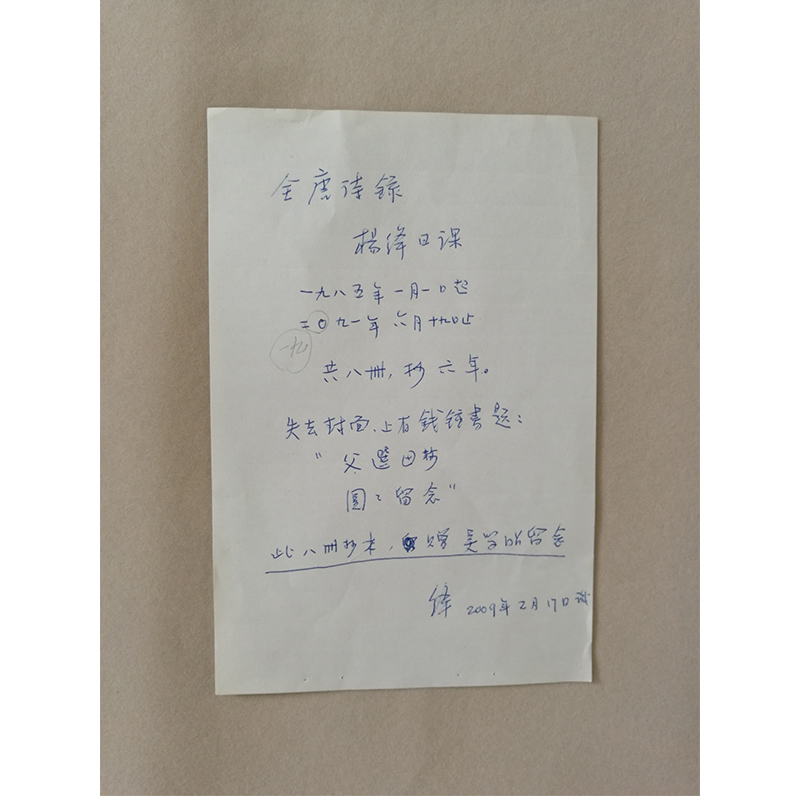 全唐诗錄
楊绛日课
一九八五年一月一日起
二〇九一年六月十九日止
一九
共八冊,抄六年。
失去封面,上有錢锺書题:
“父選母抄
圓〻留念”
此八冊抄本, 贈吴学昭留念
绛 2009年2月17日